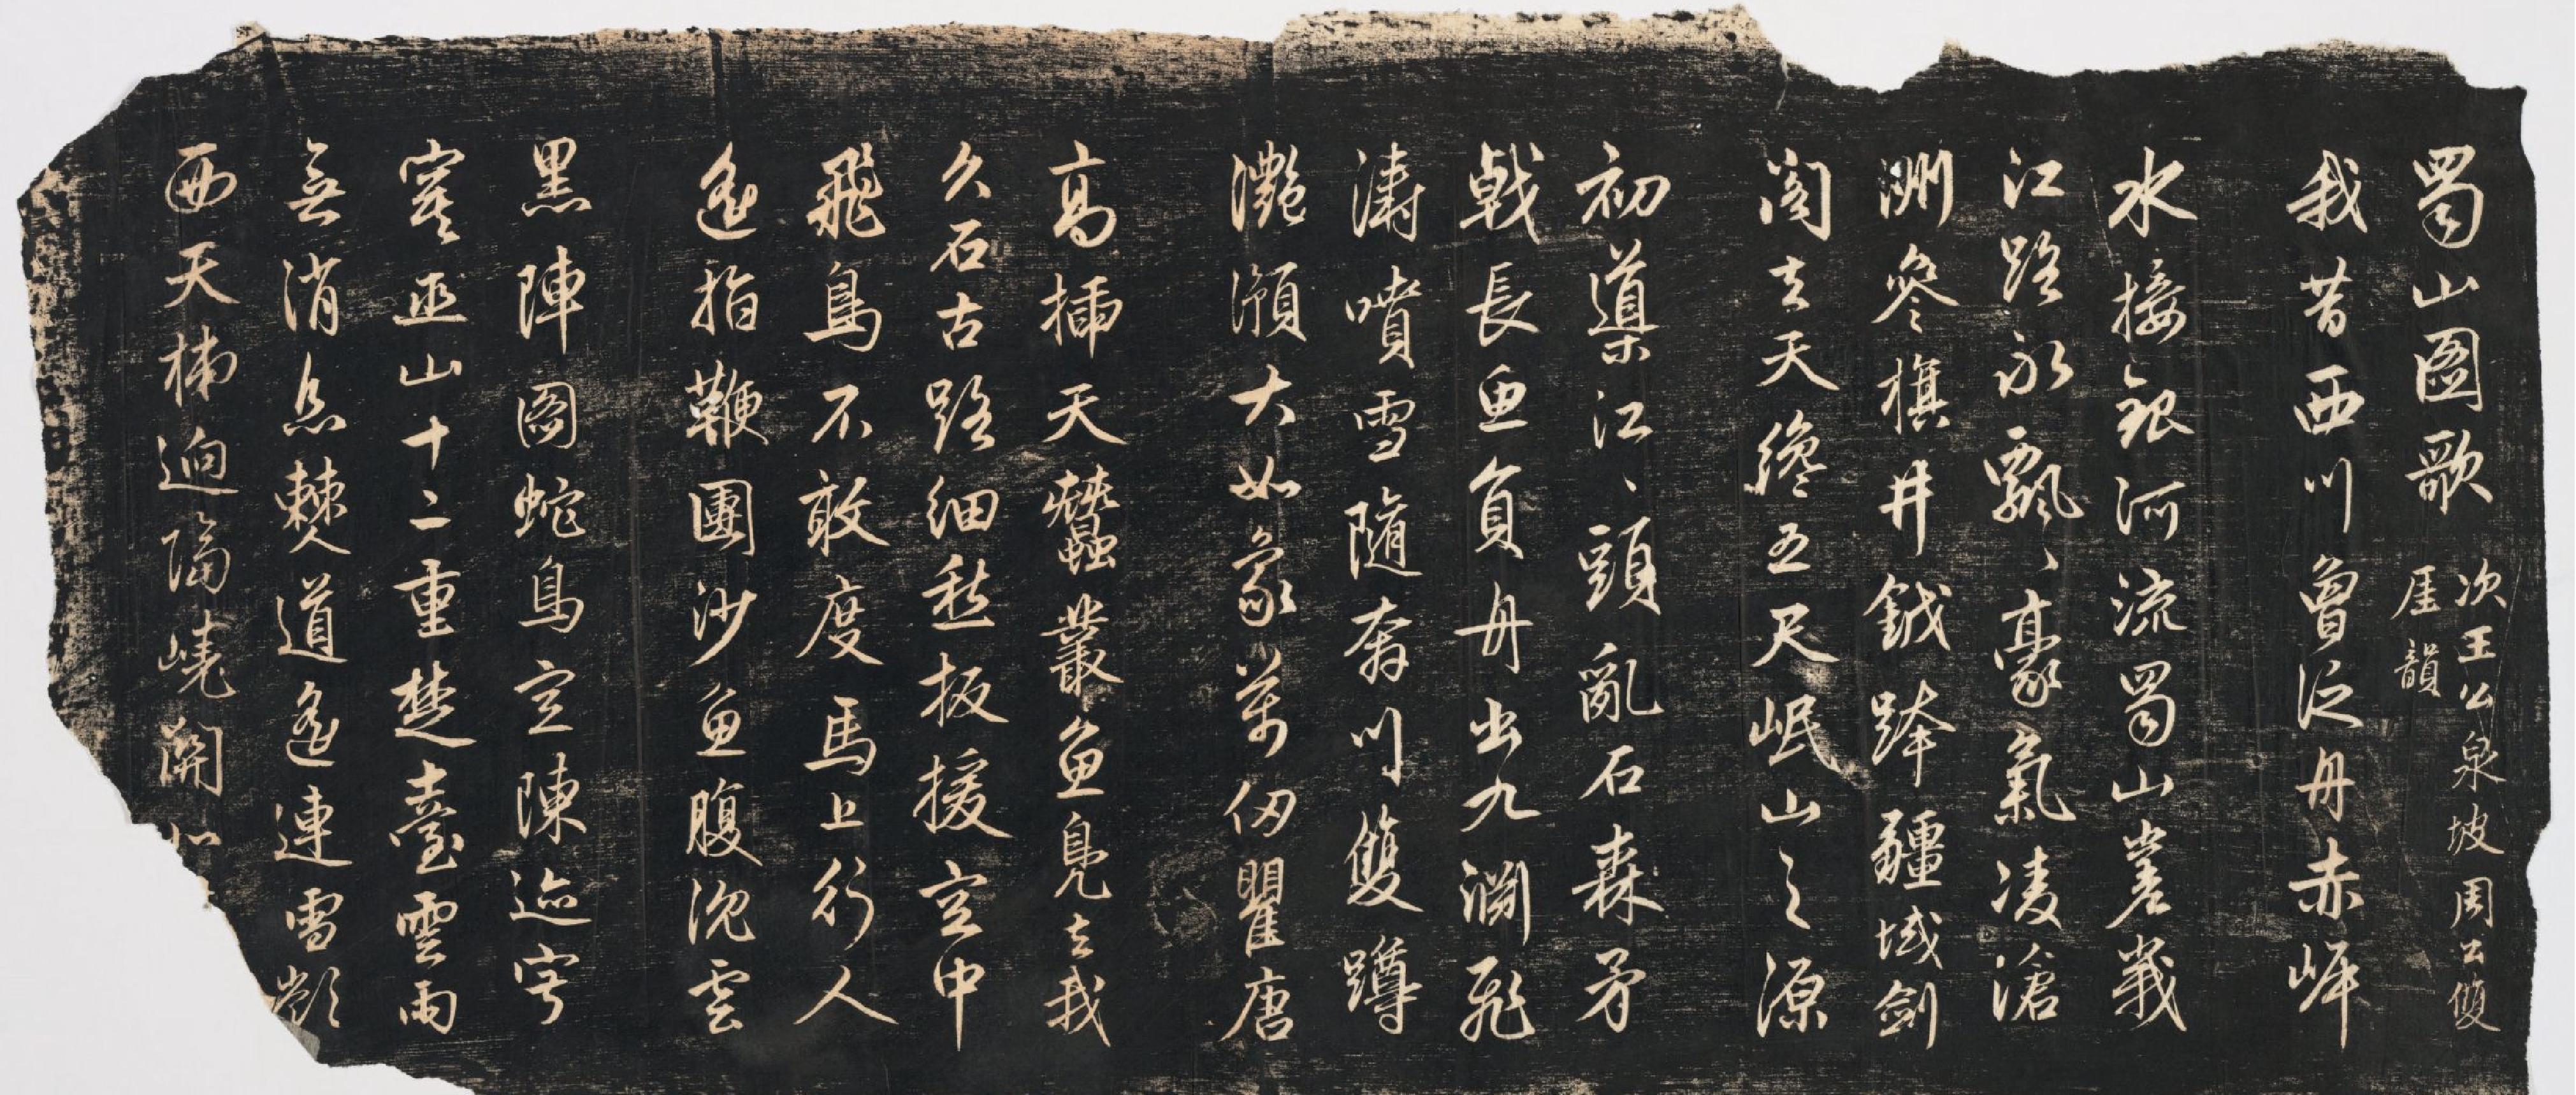 蜀山圖歌
次王公泉坡周公雙
厓韻
我昔西川曾泛舟赤岸
水接銀河流蜀山峩峩
江路永飄、豪氣凌滄
洲參旗井鉞跨疆域劍
閣去天纔五尺岷山之源
初導江、頭亂石森矛
戟長魚負舟出九淵飛
濤噴雪隨奔川雙蹲
灧澦大如象萬仞瞿唐
高插天蠶叢魚鳧去我
久石古路細愁扳援空中
飛鳥不敢度馬上行人
遙指鞭團沙魚腹沈雲
黑陣圖蛇鳥空陳迹宇
寒巫山十二重楚臺雲雨
無消息僰道遙連雪嶺
西天梯迥隔嶢關